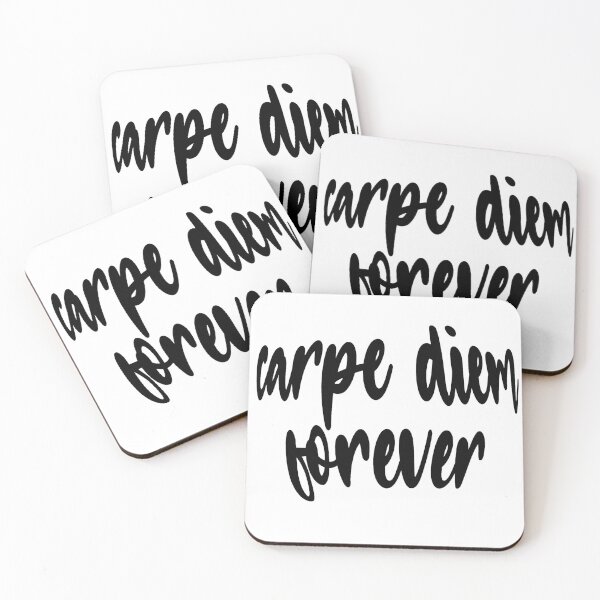 carpe diem
carpe diem
forever
carpe diem
forever
carpe diem
forever